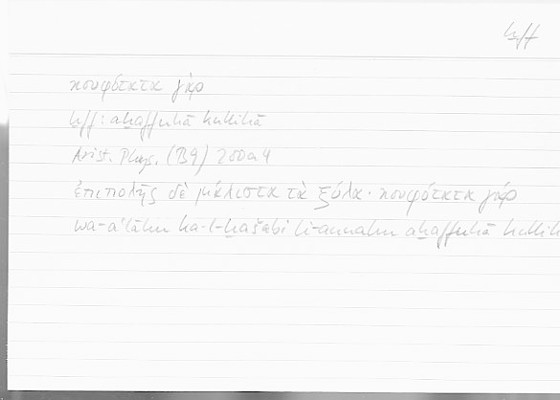 ḫff
κουφότατα γάρ
ḫff: aḫaffuhā kullihā
Arist. Phys. (B9) 200a4
ἐπιπολῆς δὲ μάλιστα τὰ ξύλα· κουφότατα γάρ
wa-a‘lāhu ka-l-ḫašabi li-annahu aḫaffuhā kullih